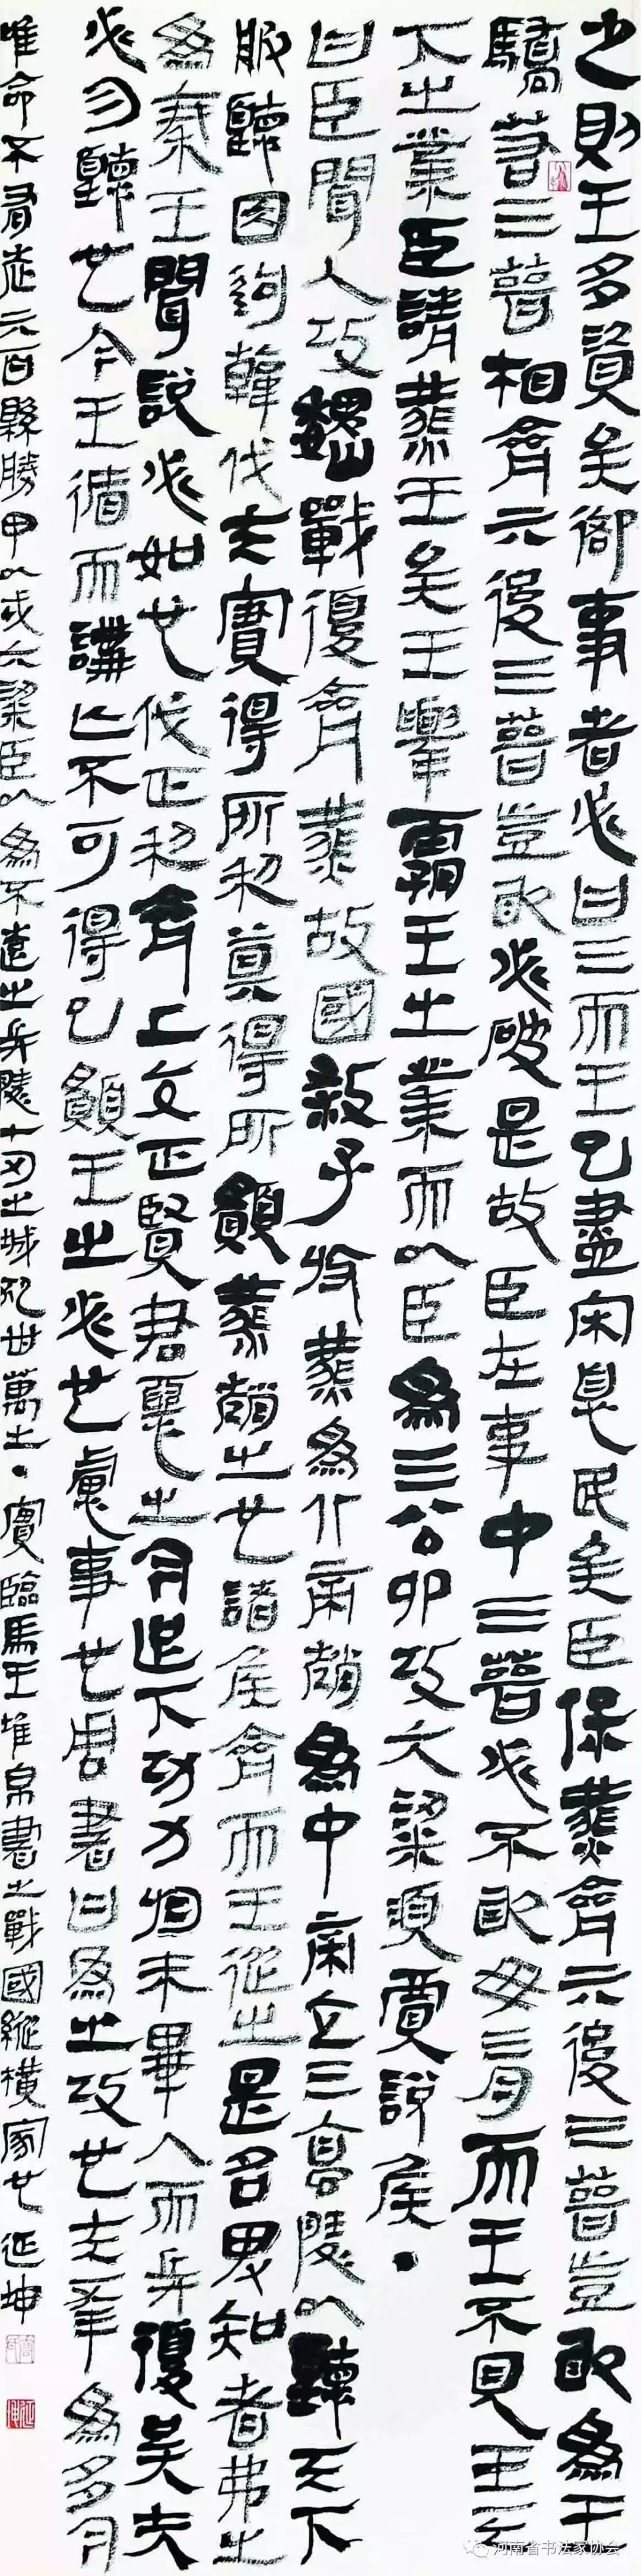 之則王多資矣御事者必曰三而王已盡宋息民矣臣保燕會六後三晉豈敢為王
驕若三晉相會六後三晉豈敢必破是故臣在事中三晉必不敢毋三月而王不見王天
下之業臣請燕王矣王舉霸王之業而以臣為三公卯攻大梁須賈說侯·
曰臣聞人攻魏戰復會燕故國殺子收燕為介南趙為中南立三高陵以聽天下
服聽因韓伐夫實得所利莫得所願燕趙之也諸侯會而王從之是名畏知者弗之
為秦王聞說必如也伐正利會上交正賢君惡之今下功力未畢入而兵復吳夫
必勿聽也今王循而講亡不可得已願王之必也慮事也周書曰為之攻也夫輕為多月
唯命不有走元百縣勝甲以戍大梁臣以為不遣之兵陵十刃之城犯卅萬之·實臨馬王堆帛書之戰國縱橫家也 延坤
河南省书法家协会